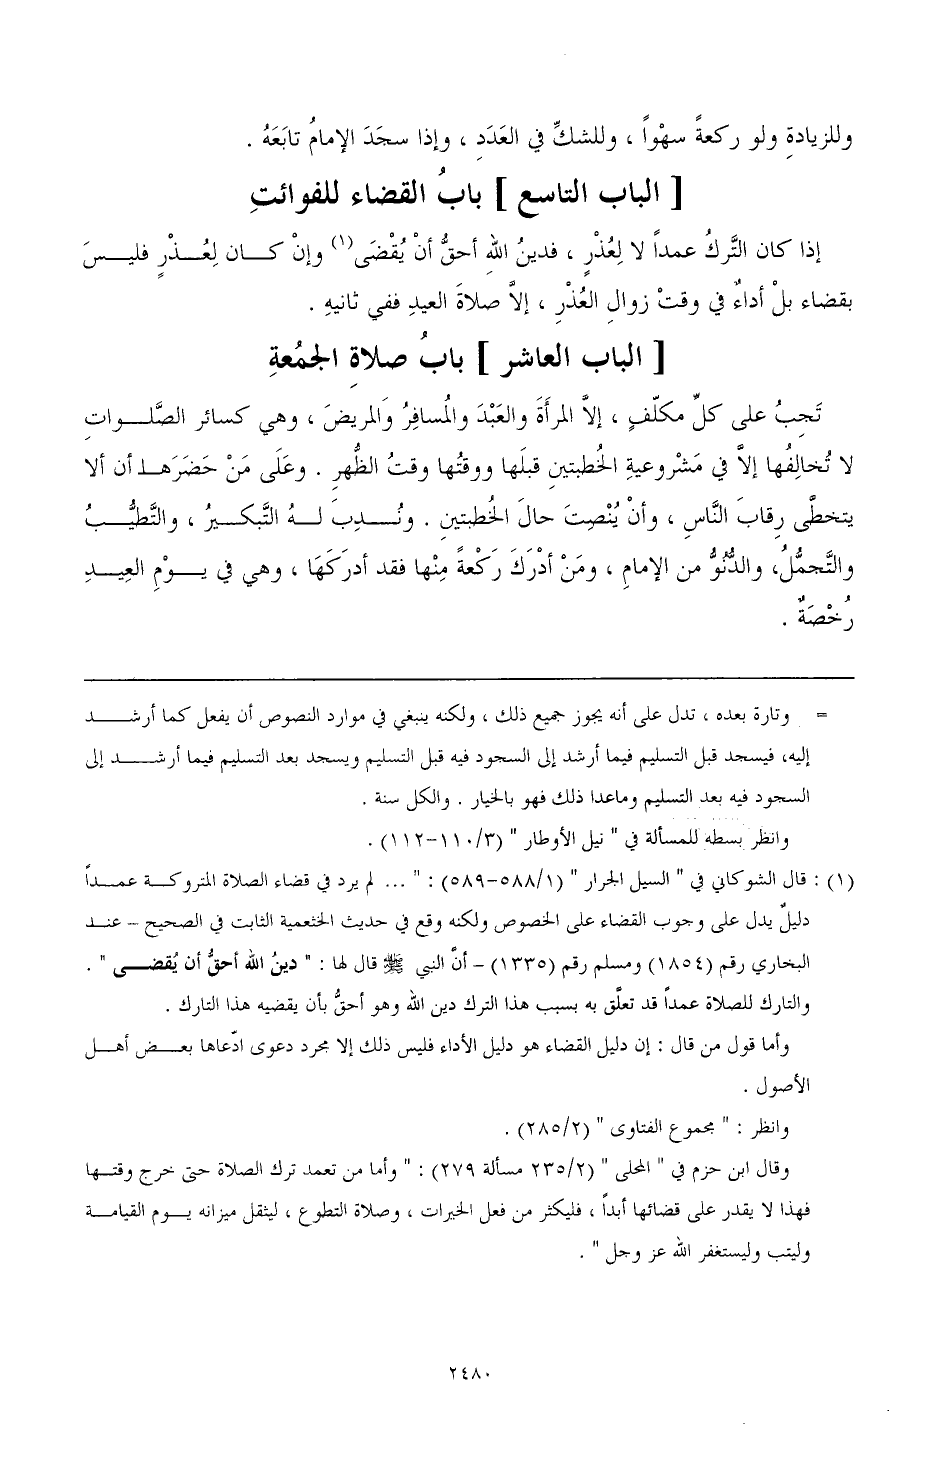 وللزيادةِ ولو ركعةً سهْواً ، وللشكِّ في العَدَدِ ، وإذا سجَدَ الإمامُ تابَعَهُ .
[ الباب التاسع ] بابُ القضاء للفوائتِ
إذا كان التَّركُ عمداً لا لِعُذْرٍ ، فدينُ اللهِ أحقُّ أنْ يُقْضَى (١) وإنْ كـــان لِعُـــذْرٍ فليـــسَ
بقضاء بلْ أداءٌ في وقتْ زوالِ العُذْرِ ، إلاَّ صلاةَ العيدِ ففي ثانيهِ .
[ الباب العاشر ] بابُ صلاةِ الجمُعةِ
تَجبُ على كلِّ مكلّفٍ ، إلاَّ المرأةَ والعَبْدَ والمُسافِرُ والمريضَ ، وهي كسائر الصَّلـــوات
لا تُخالِفُها إلاَّ في مَشْروعيةِ الخُطبتينِ قبلَها ووقتُها وقتُ الظُّهرِ . وعَلَى مَنْ حَضَرَهـا أن ألا
يتخطَّى رِقابَ النَّاسِ ، وأنْ يُنْصِتَ حالَ الخُطبتينِ . ونُـــدِبَ لـــهُ التَّبكـــيرُ ، والتَّطيُّـــبُ
والتَّجمُّلُ، والدُّنُوُّ من الإمامِ ، ومَنْ أدْرَكَ رَكْعةً مِنْها فقد أدرَكَهَا ، وهي في يـــوْمِ العِيـــدِ
رُخْصَةٌ .
= وتارة بعده ، تدل على أنه يجوز جميع ذلك ، ولكنه ينبغي في موارد النصوص أن يفعل كما أرشـــد
إليه، فيسجد قبل التسليم فيما أرشد إلى السجود فيه قبل التسليم ويسجد بعد التسليم فيما أرشـــد إلى
السجود فيه بعد التسليم وماعدا ذلك فهو بالخيار . والكل سنة .
وانظر بسطه للمسألة في " نيل الأوطار " (٣/١١٠-١١٢) .
(١) : قال الشوكاني في " السيل الجرار " (١/٥٨٨-٥٨٩) : " ... لم يرد في قضاء الصلاة المتروكـة عمـــداً
دليلٌ يدل على وجوب القضاء على الخصوص ولكنه وقع في حديث الخثعمية الثابت في الصحيح - عنـــد
البخاري رقم (١٨٥٤) ومسلم رقم (١٣٣٥) - أنَّ النبي ﷺ قال لها : " دينُ الله أحقُّ أن يُقضـــى " .
والتارك للصلاة عمداً قد تعلّق به بسبب هذا الترك دين الله وهو أحقُّ بأن يقضيه هذا التارك .
وأما قول من قال : إن دليل القضاء هو دليل الأداء فليس ذلك إلا مجرد دعوى ادّعاها بعـــض أهـــل
الأصول .
وانظر : " مجموع الفتاوى " (٢/٢٨٥) .
وقال ابن حزم في " المحلى " (٢/٢٣٥ مسألة ٢٧٩) : " وأما من تعمد ترك الصلاة حتى خرج وقتـــها
فهذا لا يقدر على قضائها أبداً ، فليكثر من فعل الخيرات ، وصلاة التطوع ، ليثقل ميزانه يـــوم القيامـــة
وليتب وليستغفر الله عز وجل " .
٢٤٨٠